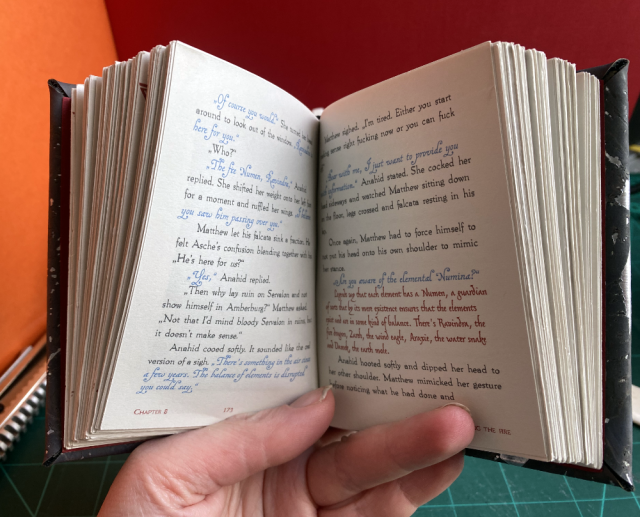 „Of course you would." She turned her
around to look out of the window.
here for you."
„Who?"
„The fire Numen, Ravindra," Anahid
replied. She shifted her weight onto her left
for a moment and ruffled her wings.
you saw him passing over you."
Matthew let his falcata sink a fraction. He
felt Asche's confusion blending together with
„He's here for us?"
„Yes," Anahid replied.
„Then why lay ruin on Servaion and not
show himself in Amberburg?" Matthew asked.
„Not that I'd mind bloody Servaion in ruins, but
it doesn't make sense."
Anahid cooed softly. It sounded like the
version of a sigh. „There's something in the
a few years. The balance of elements is disrupted
you could say."
CHAPTER 8
177
Matthew sighed. „I'm tired. Either you start
sense right fucking now or you can fuck
with me, I just want to provide you
information," Anahid stated. She cocked her
sideways and watched Matthew sitting down
the floor, legs crossed and falcata resting in his
Once again, Matthew had to force himself to
put his head onto his own shoulder to mimic
her stance.
„Are you aware of the elemental Numina?"
Legends say that each element has a Numen, a guardian
of sorts that by its mere existence ensures that the elements
exist and are in some kind of balance. There's Ravindra, the
the wind eagle, the water snake
the earth wolf.
Anahid hooted softly and dipped her head to
her other shoulder. Matthew mimicked her gesture
noticing what he had done and
THE FIRE